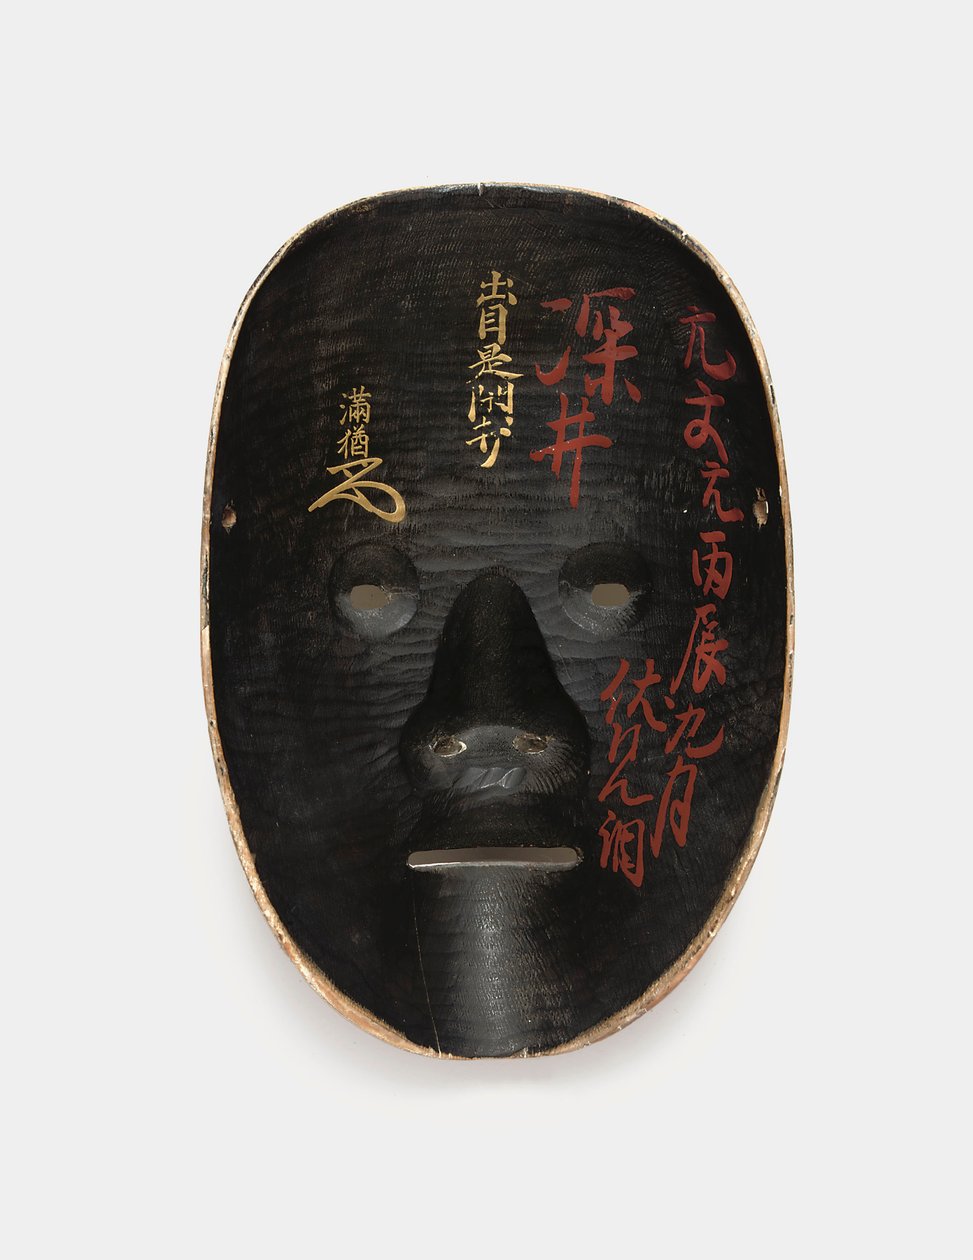 元文元丙辰九月
伏りん調
深井
出目是閑打
滿猶